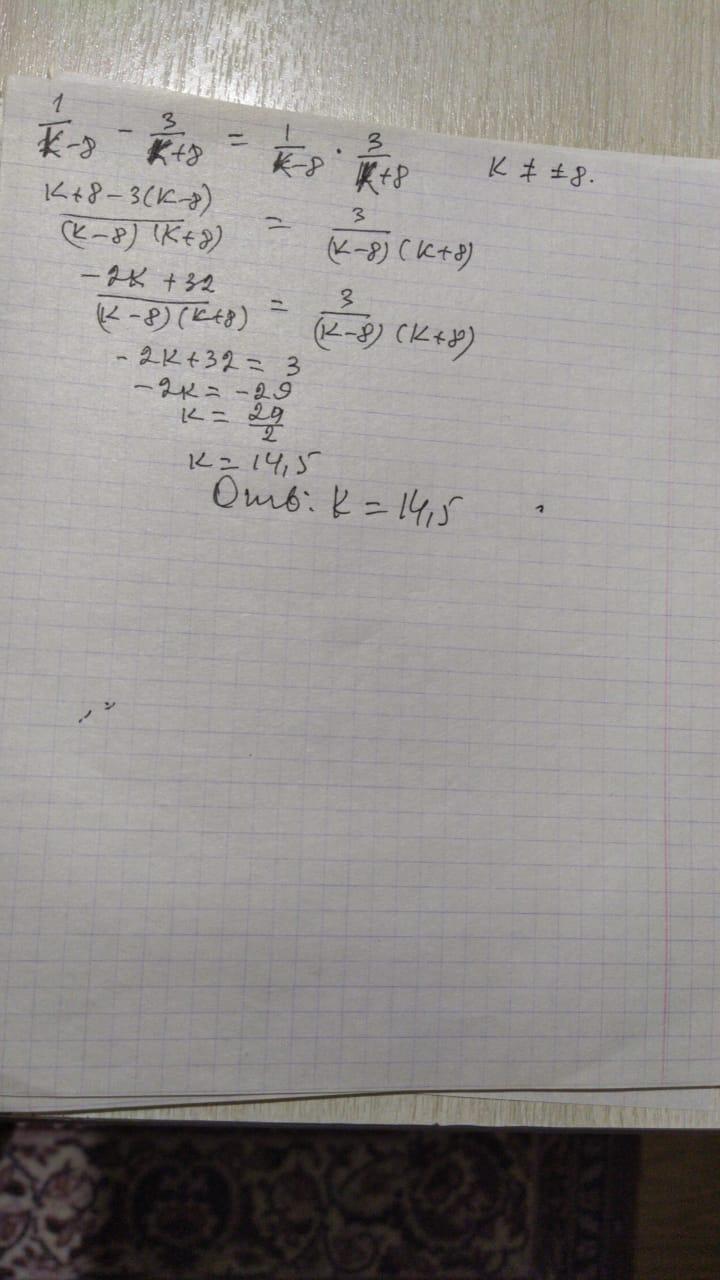 1/(K-8) - 3/(K+8) = 1/(K-8) · 3/(K+8) K ≠ ±8.
(K+8-3(K-8))/((K-8)(K+8)) = 3/((K-8)(K+8))
(-2K+32)/((K-8)(K+8)) = 3/((K-8)(K+8))
-2K+32 = 3
-2K = -29
K = 29/2
K = 14,5
Отв: K = 14,5